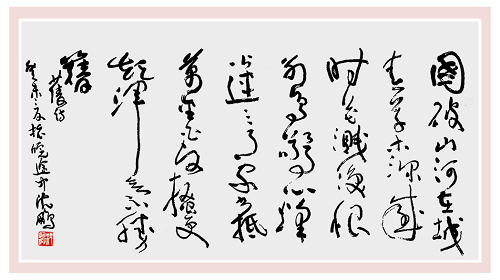 國破山河在城
春草木深感
时花濺淚恨
别鸟驚心烽
火連三月家书抵
萬金白頭搔更
短渾欲不勝
簪
癸未夏 沈鹏